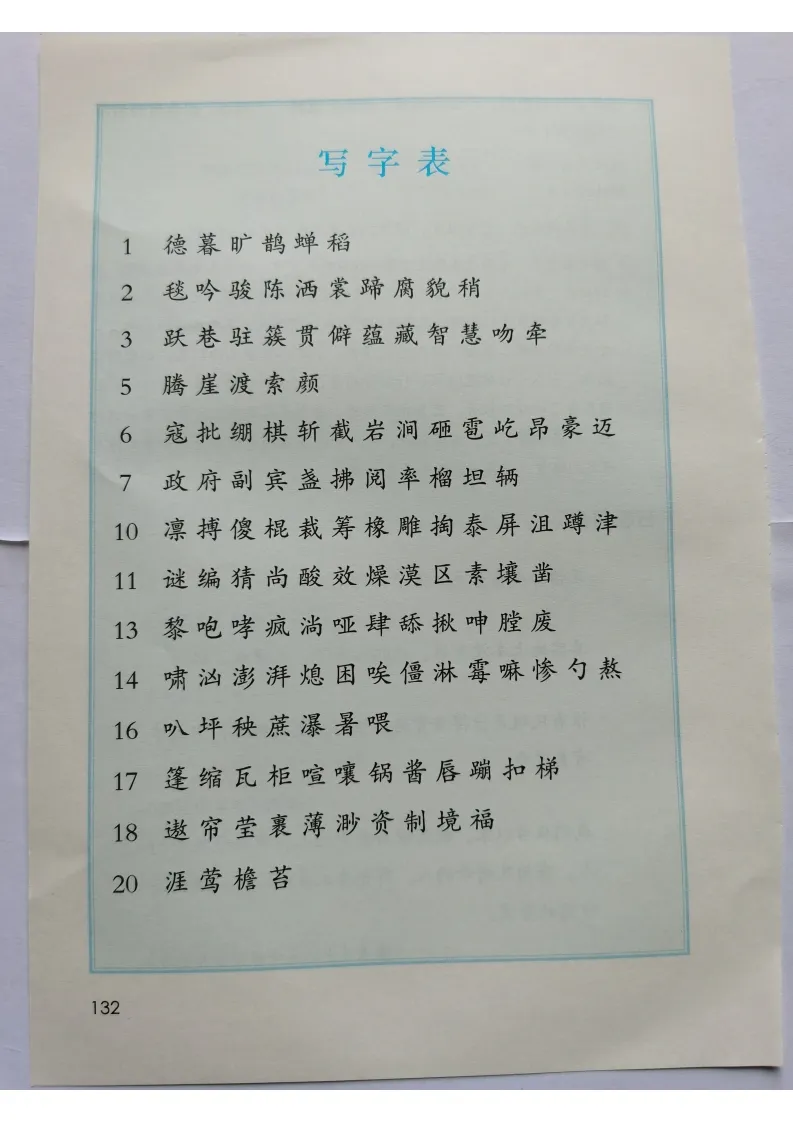 写字表
1 德暮旷鹊蝉稻
2 毯吟骏陈洒裳蹄腐貌稍
3 跃巷驻簇贯僻蕴藏智慧吻牵
5 腾崖渡索颜
6 寇批绷棋斩截岩涧砸雹屹昂豪迈
7 政府副宾盏拂阅率榴坦辆
10 凛搏傻棍裁筹橡雕掏泰屏沮蹲津
11 谜编猜尚酸效燥漠区素壤凿
13 黎咆哮疯淌哑肆舔揪呻膛废
14 啸汹澎湃熄困唉僵淋霉嘛惨勺熬
16 叭坪秧蔗瀑暑喂
17 篷缩瓦柜喧嚷锅酱唇蹦扣梯
18 遨帘莹裹薄渺资制境福
20 涯莺檐苔
132